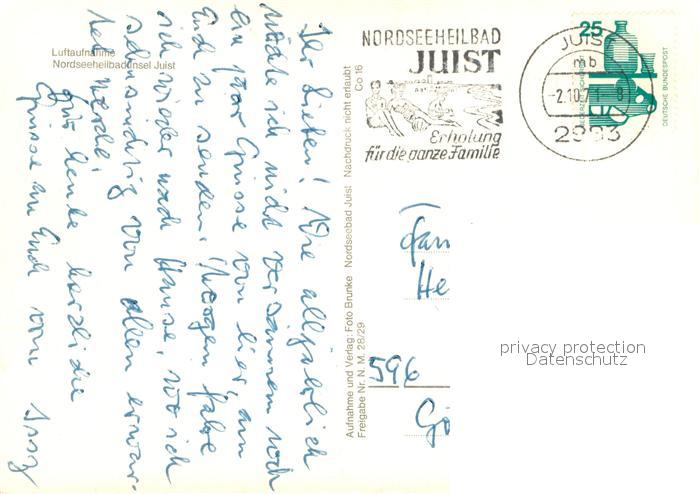 Luftaufnahme
Nordseeheilbadinsel Juist
Ihr Lieben! Wie alljährlich
möchte ich nicht versäumen noch
ein paar Grüsse von hier an
Euch zu senden. Morgen fahre
ich wieder nach Hause, wo ich
sehnsüchtig von allen erwar-
tet werde.
Für heute herzliche
Grüsse an Euch von
Aufnahme und Verlag: Foto Brunke Nordseebad Juist Nachdruck nicht erlaubt Co 16
Freigabe Nr. N. M. 28/29
NORDSEEHEILBAD
JUIST
Erholung
für die ganze Familie
JUIST
mb
-2.10.71 - 8
2983
25
DEUTSCHE BUNDESPOST
Fam
He
596
Gö
privacy protection
Datenschutz